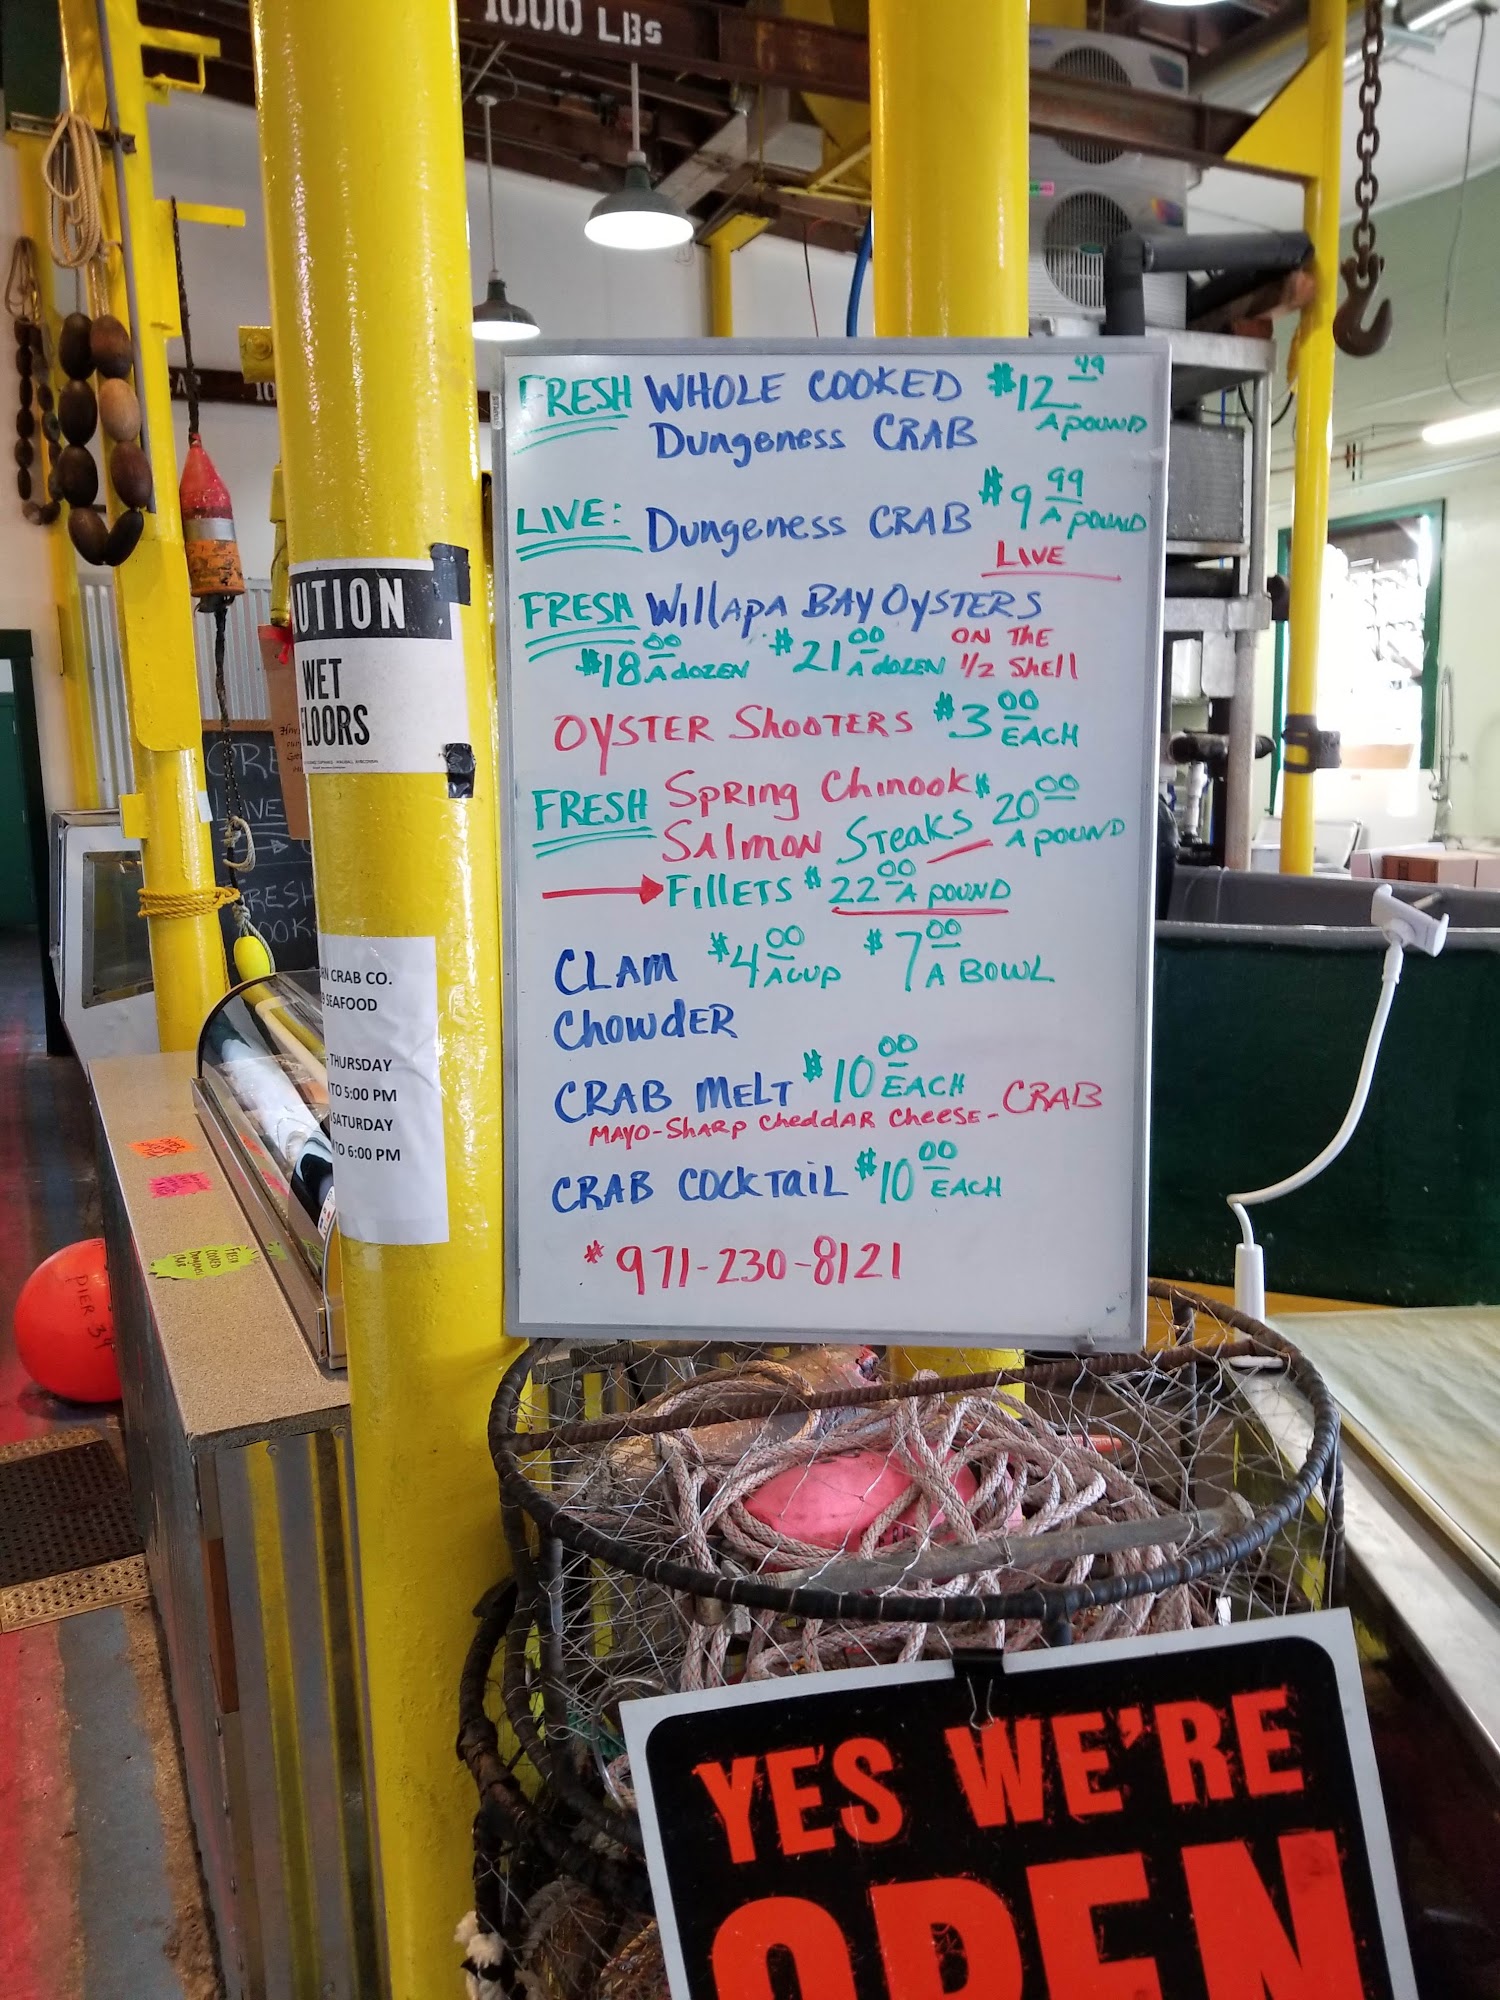 1000 LBS
FRESH WHOLE COOKED $12 49
Dungeness CRAB A POUND
LIVE: Dungeness CRAB $9 99 A POUND
LIVE
FRESH Willapa BAY OYSTERS
$18 00 A dozen $21 00 A dozen ON THE ½ Shell
OYSTER Shooters $3 00 EACH
FRESH Spring Chinook
Salmon Steaks $20 00 A POUND
Fillets $22 00 A POUND
CLAM Chowder $4 00 A CUP $7 00 A BOWL
CRAB MELT $10 00 EACH
MAYO-SHARP Cheddar Cheese-CRAB
CRAB COCKTAIL $10 00 EACH
# 971-230-8121
UTION
WET
LOORS
CRAB CO.
SEAFOOD
THURSDAY
TO 5:00 PM
SATURDAY
TO 6:00 PM
CRE
LIVE
FRESH
COOK
FRESH
COOKED
Dungeness
CRAB
PIER 39
YES WE'RE
OPEN